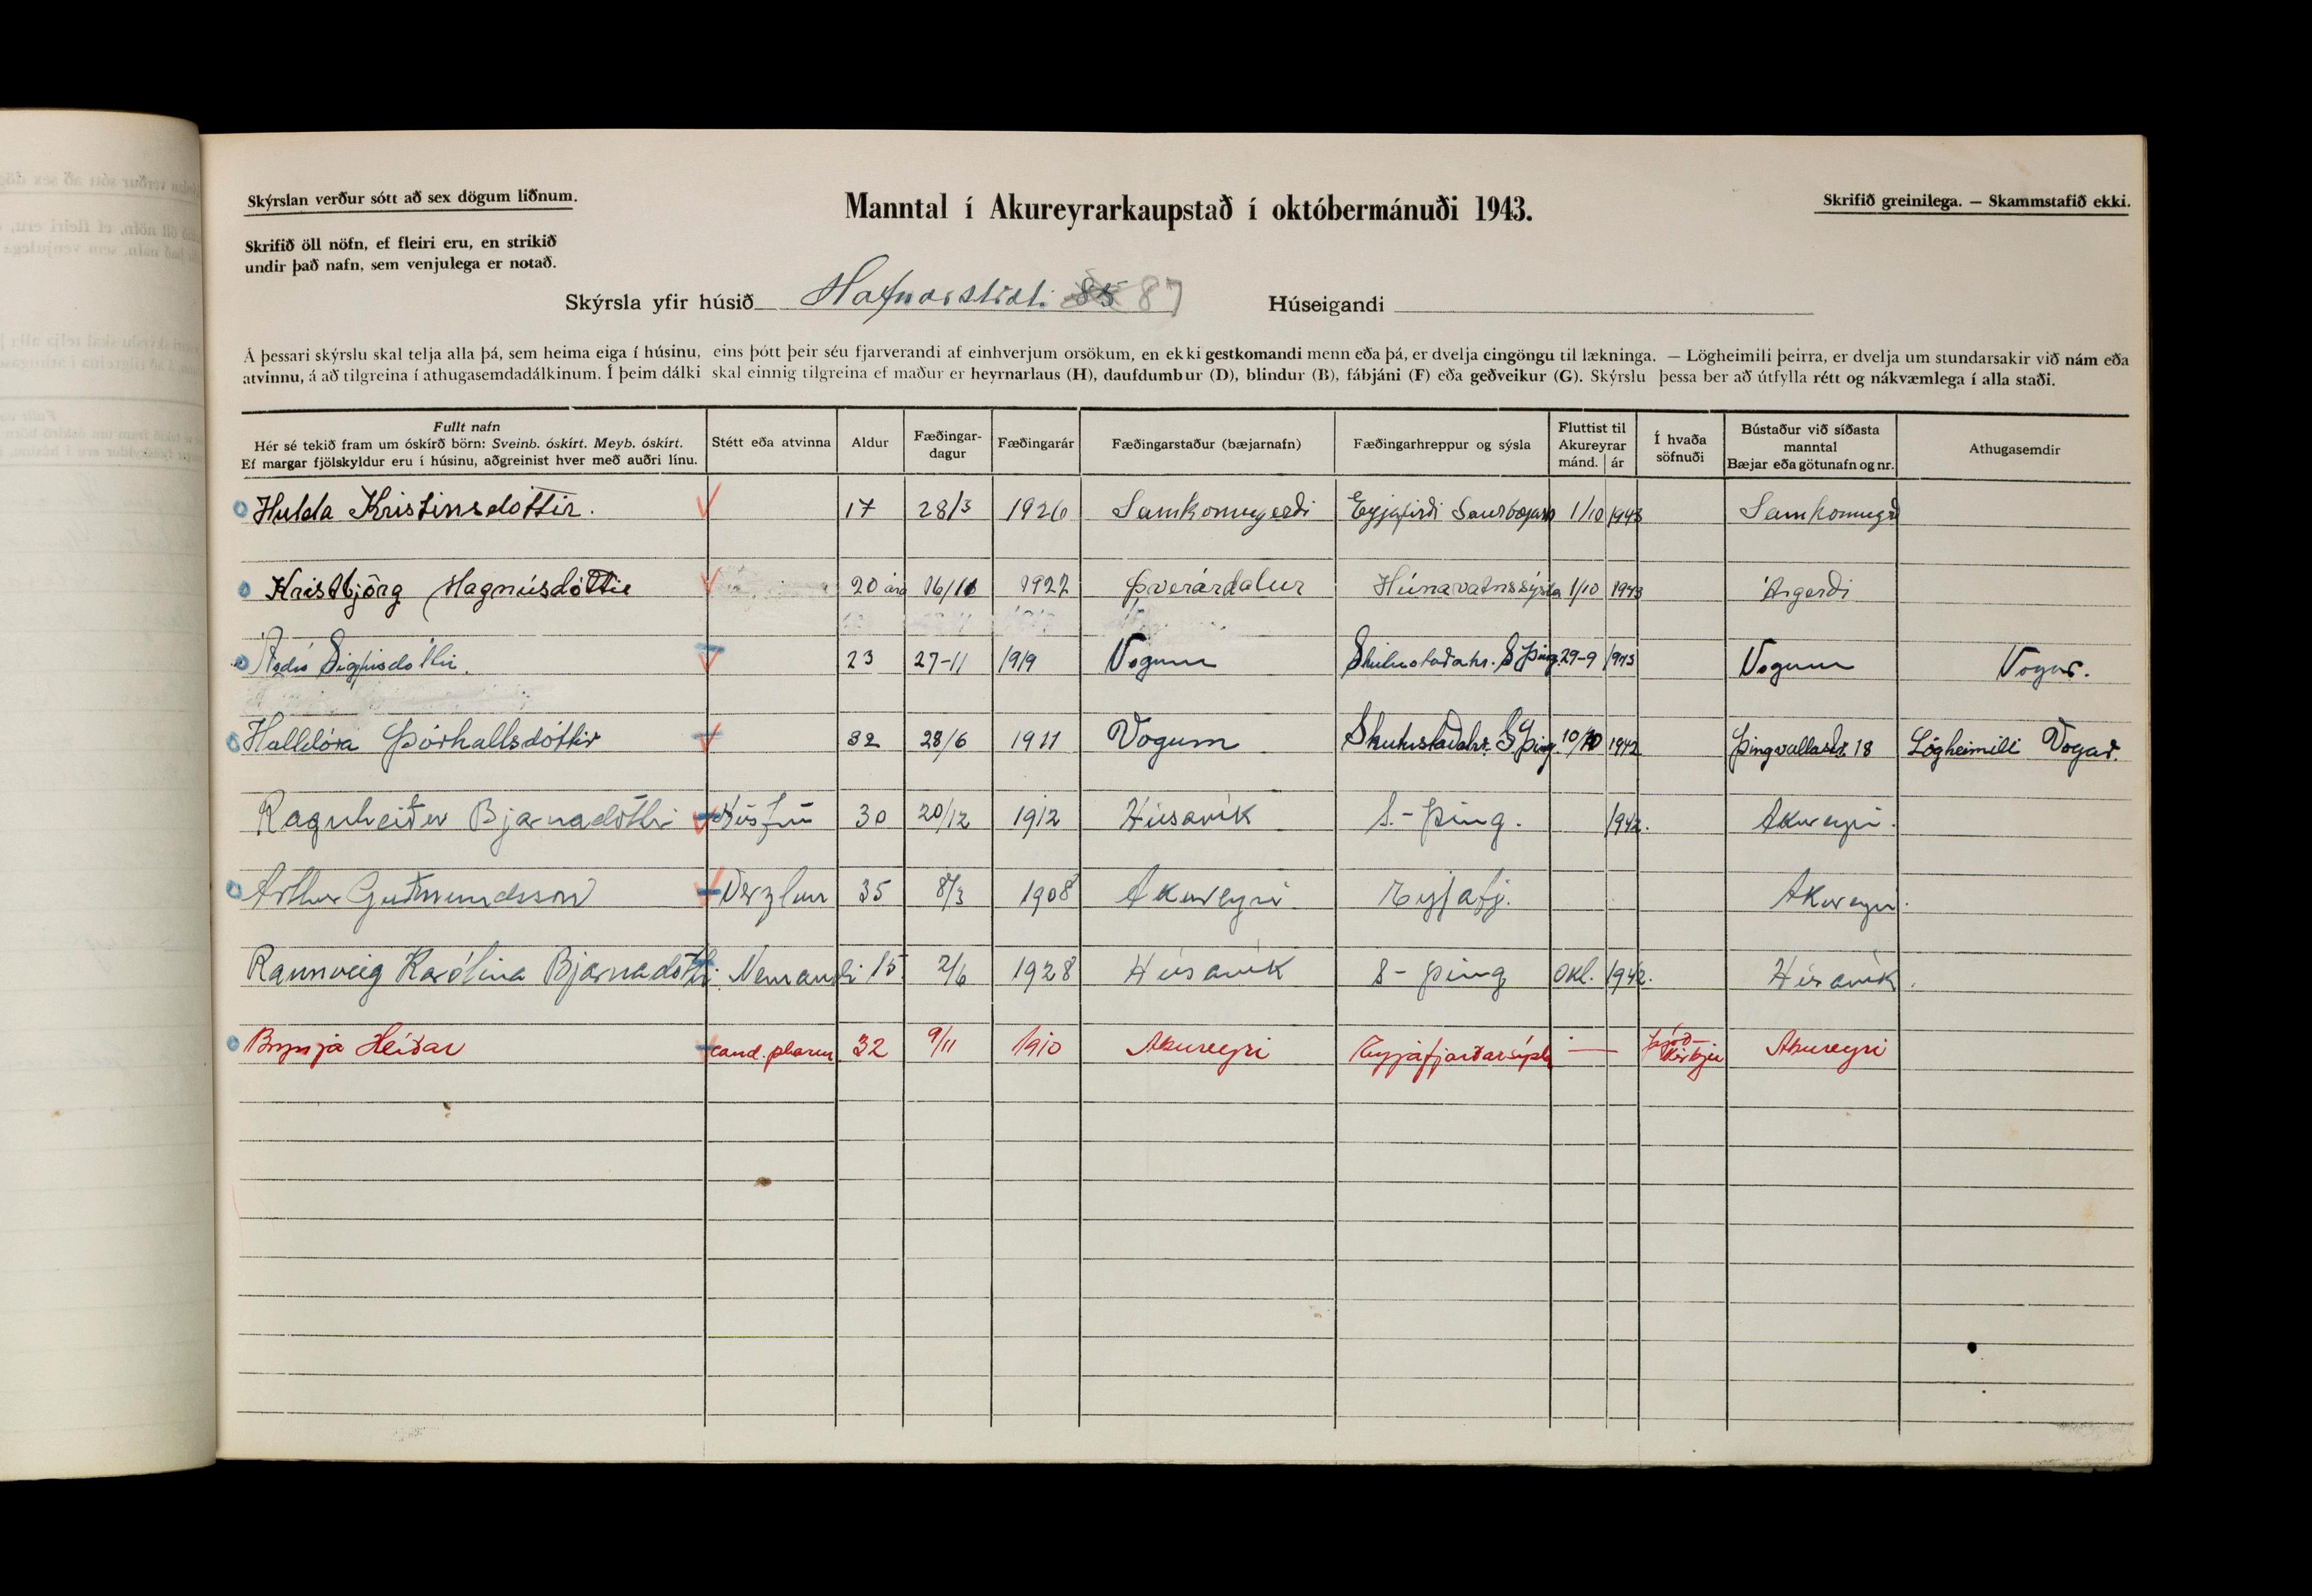 Skýrslan verður sótt að sex dögum liðnum.
Manntal í Akureyrarkaupstað í októbermánuði 1943.
Skrifið greinilega. — Skammstafið ekki.
Skrifið öll nöfn, ef fleiri eru, en strikið
undir það nafn, sem venjulega er notað.
Skýrsla yfir húsið Hafnarstræti 85 87 Húseigandi
Á þessari skýrslu skal telja alla þá, sem heima eiga í húsinu, eins þótt þeir séu fjarverandi af einhverjum orsökum, en ekki gestkomandi menn eða þá, er dvelja eingöngu til lækninga. — Lögheimili þeirra, er dvelja um stundarsakir við nám eða
atvinnu, á að tilgreina í athugasemdadálkinum. Í þeim dálki skal einnig tilgreina ef maður er heyrnarlaus (H), daufdumbur (D), blindur (B), fábjáni (F) eða geðveikur (G). Skýrslu þessa ber að útfylla rétt og nákvæmlega í alla staði.
Fullt nafn
Hér sé tekið fram um óskírð börn: Sveinb. óskírt. Meyb. óskírt.
Ef margar fjölskyldur eru í húsinu, aðgreinist hver með auðri línu.
Stétt eða atvinna
Aldur
Fæðingar-
dagur
Fæðingarár
Fæðingarstaður (bæjarnafn)
Fæðingarhreppur og sýsla
Fluttist til
Akureyrar
mánd. ár
Í hvaða
söfnuði
Bústaður við síðasta
manntal
Bæjar eða götunafn og nr.
Athugasemdir
Hulda Kristinsdóttir. 17 28/3 1926 Samkomugerði Eyjafirði 1/10 1943
Kristbjörg Magnúsdóttir 20 ára 16/11 1922 Þverárdalur Húnavatnssýsla 1/10 1943 Árgerði
Sigfúsdóttir. 23 27-11 1919 Vogum Skútustaðahr. S Þing. 29-9 1943 Vogum Vogar.
Halldóra Þórhallsdóttir 32 28/6 1911 Vogum Skútustaðahr. S Þing. 10/10 1942 Þingvallastr. 18 Lögheimili Vogar.
Ragnheiður Bjarnadóttir Húsfrú 30 20/12 1912 Húsavík S.-Þing. 1942. Akureyri.
Arthur Guðmundsson Verzlun 35 8/3 1908 Akureyri Eyjafj. Akureyri.
Rannveig Karólína Bjarnadóttir. Nemandi 15 2/6 1928 Húsavík S-Þing okt. 1942. Húsavík.
Brynja Hlíðar cand. pharm. 32 9/11 1910 Akureyri Eyjafjarðarsýsla — Þjóð-
kirkju Akureyri